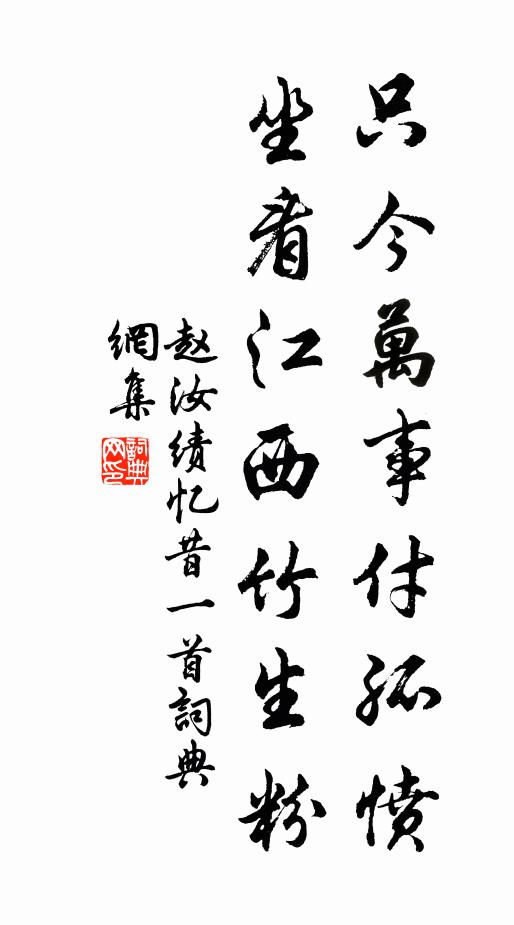 只今萬事付孤憤
坐看江西竹生粉
赵汝績忆昔一首詞典
網集
詞典网印